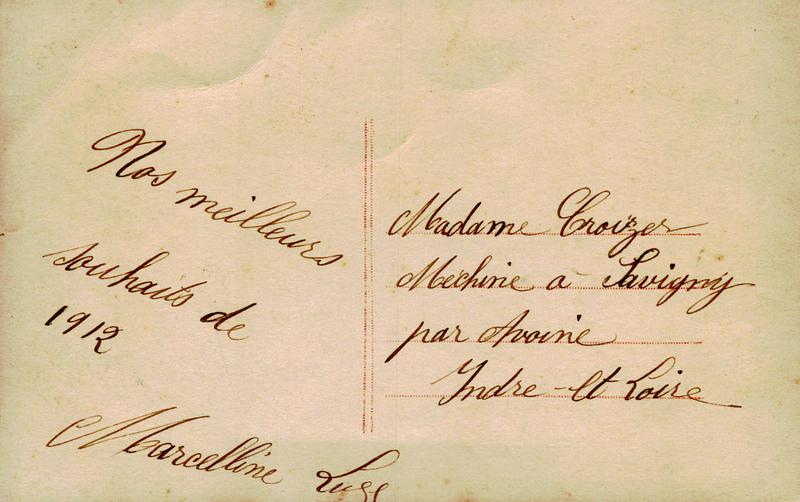 Nos meilleurs
souhaits de
1912
Marcelline
Madame Croizer
Mechine a Savigny
par Avoine
Indre-Et Loire